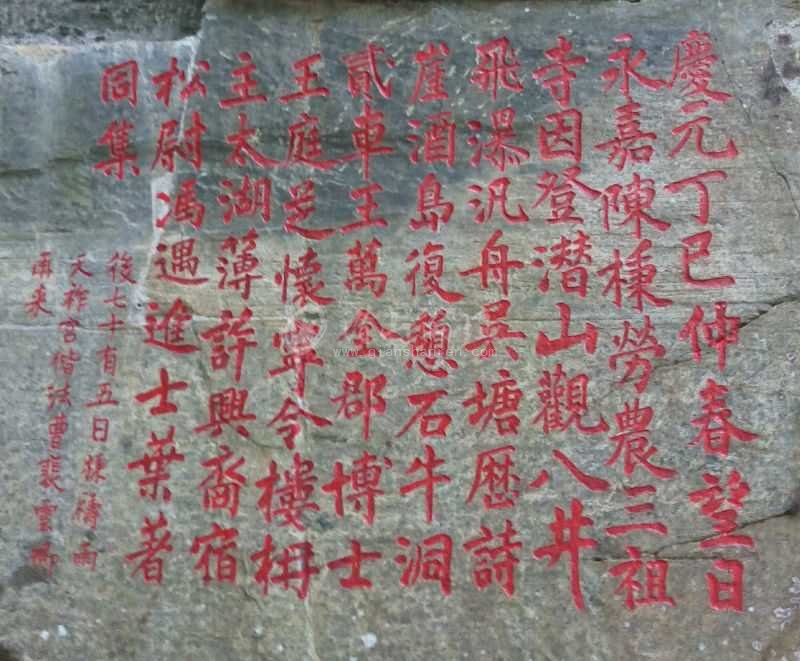 慶元丁巳仲春望日
永嘉陳楝勞農三祖
寺因登潛山觀八井
飛瀑汎舟吳塘歷詩
崖酒島復憩石牛洞
貳車王萬全郡博士
王庭芝懷寧令樓枏
主太湖薄許興裔宿
松尉馮遇進士葉著
同集
後七十有五日楝禱雨
天祚宮偕法曹裴雲卿
再来
www.qianshanren.com